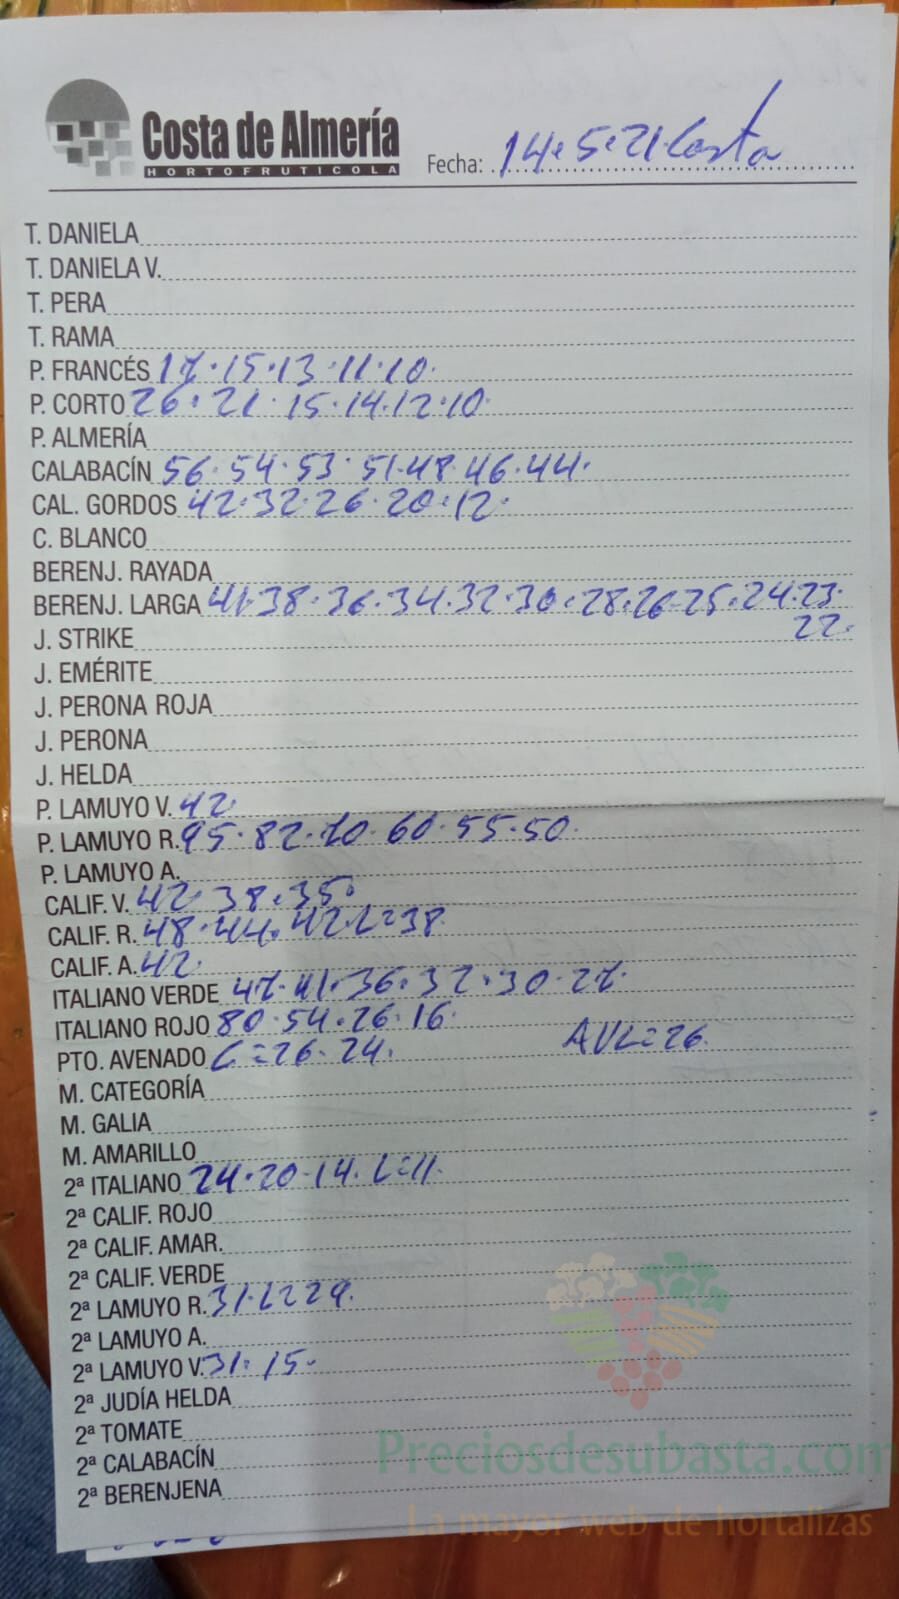 Costa de Almería
HORTOFRUTICOLA
Fecha: 14.5.21 Costa
T. DANIELA
T. DANIELA V.
T. PERA
T. RAMA
P. FRANCÉS 17.15.13.11.10.
P. CORTO 26.21.15.14.12.10.
P. ALMERÍA
CALABACÍN 56.54.53.51.48.46.44.
CAL. GORDOS 42.32.26.20.12.
C. BLANCO
BERENJ. RAYADA
BERENJ. LARGA 41.38.36.34.32.30.28.26.25.24.23.
22.
J. STRIKE
J. EMÉRITE
J. PERONA ROJA
J. PERONA
J. HELDA
P. LAMUYO V. 42.
P. LAMUYO R. 95.82.70.60.55.50.
P. LAMUYO A.
CALIF. V. 42.38.35.
CALIF. R. 48.44.42.L=38.
CALIF. A. 42.
ITALIANO VERDE 47.41.36.32.30.27.
ITALIANO ROJO 80.54.26.16.
PTO. AVENADO C=26.24. AVL=26.
M. CATEGORÍA
M. GALIA
M. AMARILLO
2ª ITALIANO 24.20.14.L=11.
2ª CALIF. ROJO
2ª CALIF. AMAR.
2ª CALIF. VERDE
2ª LAMUYO R. 31.L=29.
2ª LAMUYO A.
2ª LAMUYO V. 31.15.
2ª JUDÍA HELDA
2ª TOMATE
2ª CALABACÍN
2ª BERENJENA
Preciosdesubasta.com
La mayor web de hortalizas